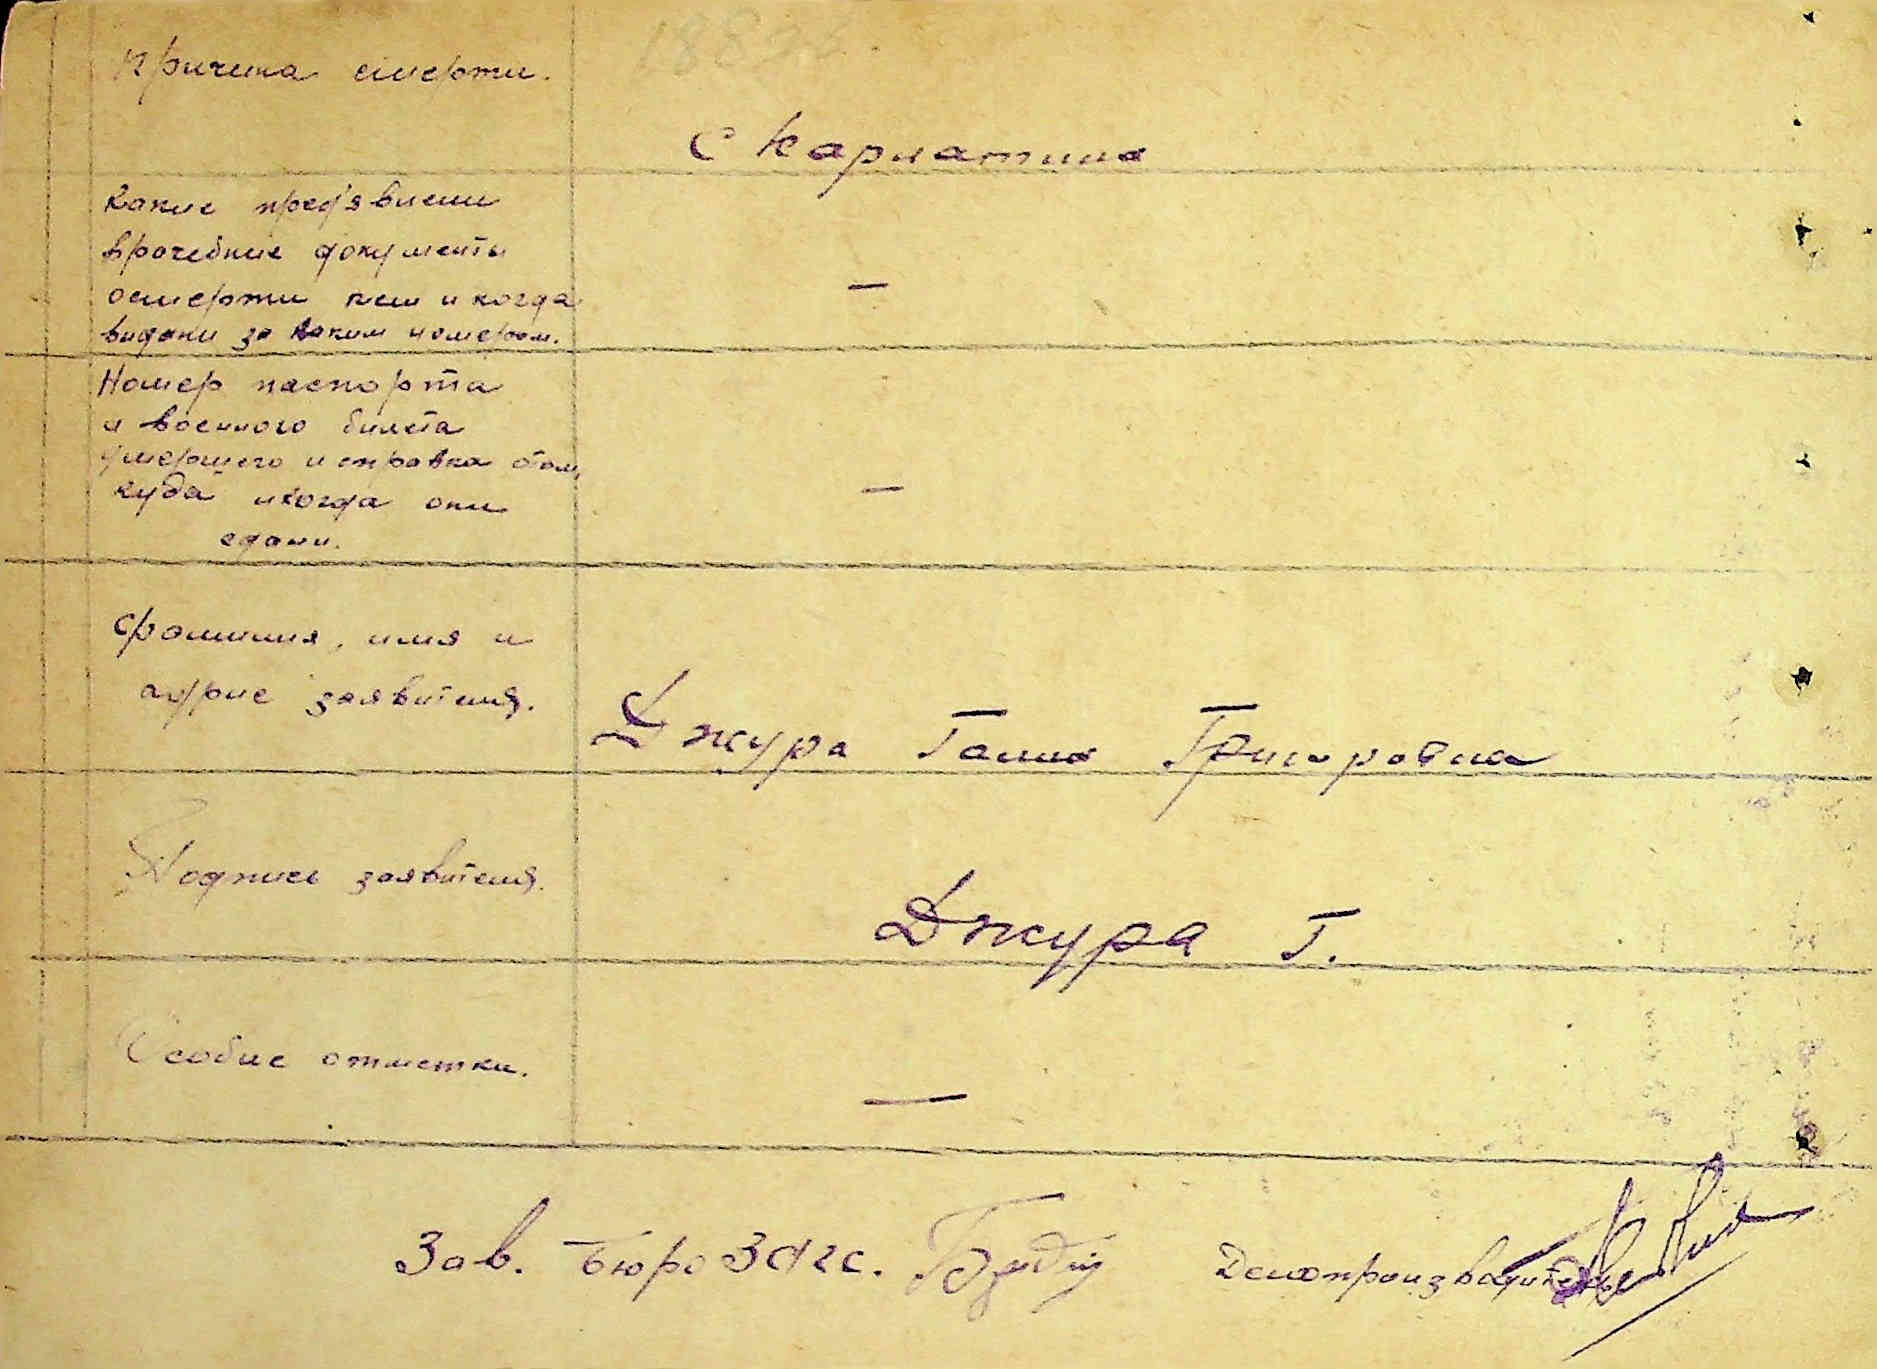 Причина смерти.
Скарлатина
Какие пред'явлени
врачебние документы
осмерти кем и когда
видани за каким номером.
—
Номер паспорта
и военного билета
умершего и справка отом,
куда икогда они
сдани.
—
Фамилия, имя и
адрис заявителя.
Джура Галина Григоровна
Подпись заявителя.
Джура Г.
Особие отметки.
—
Зав. Бюро ЗАГС. Делопроизводитель